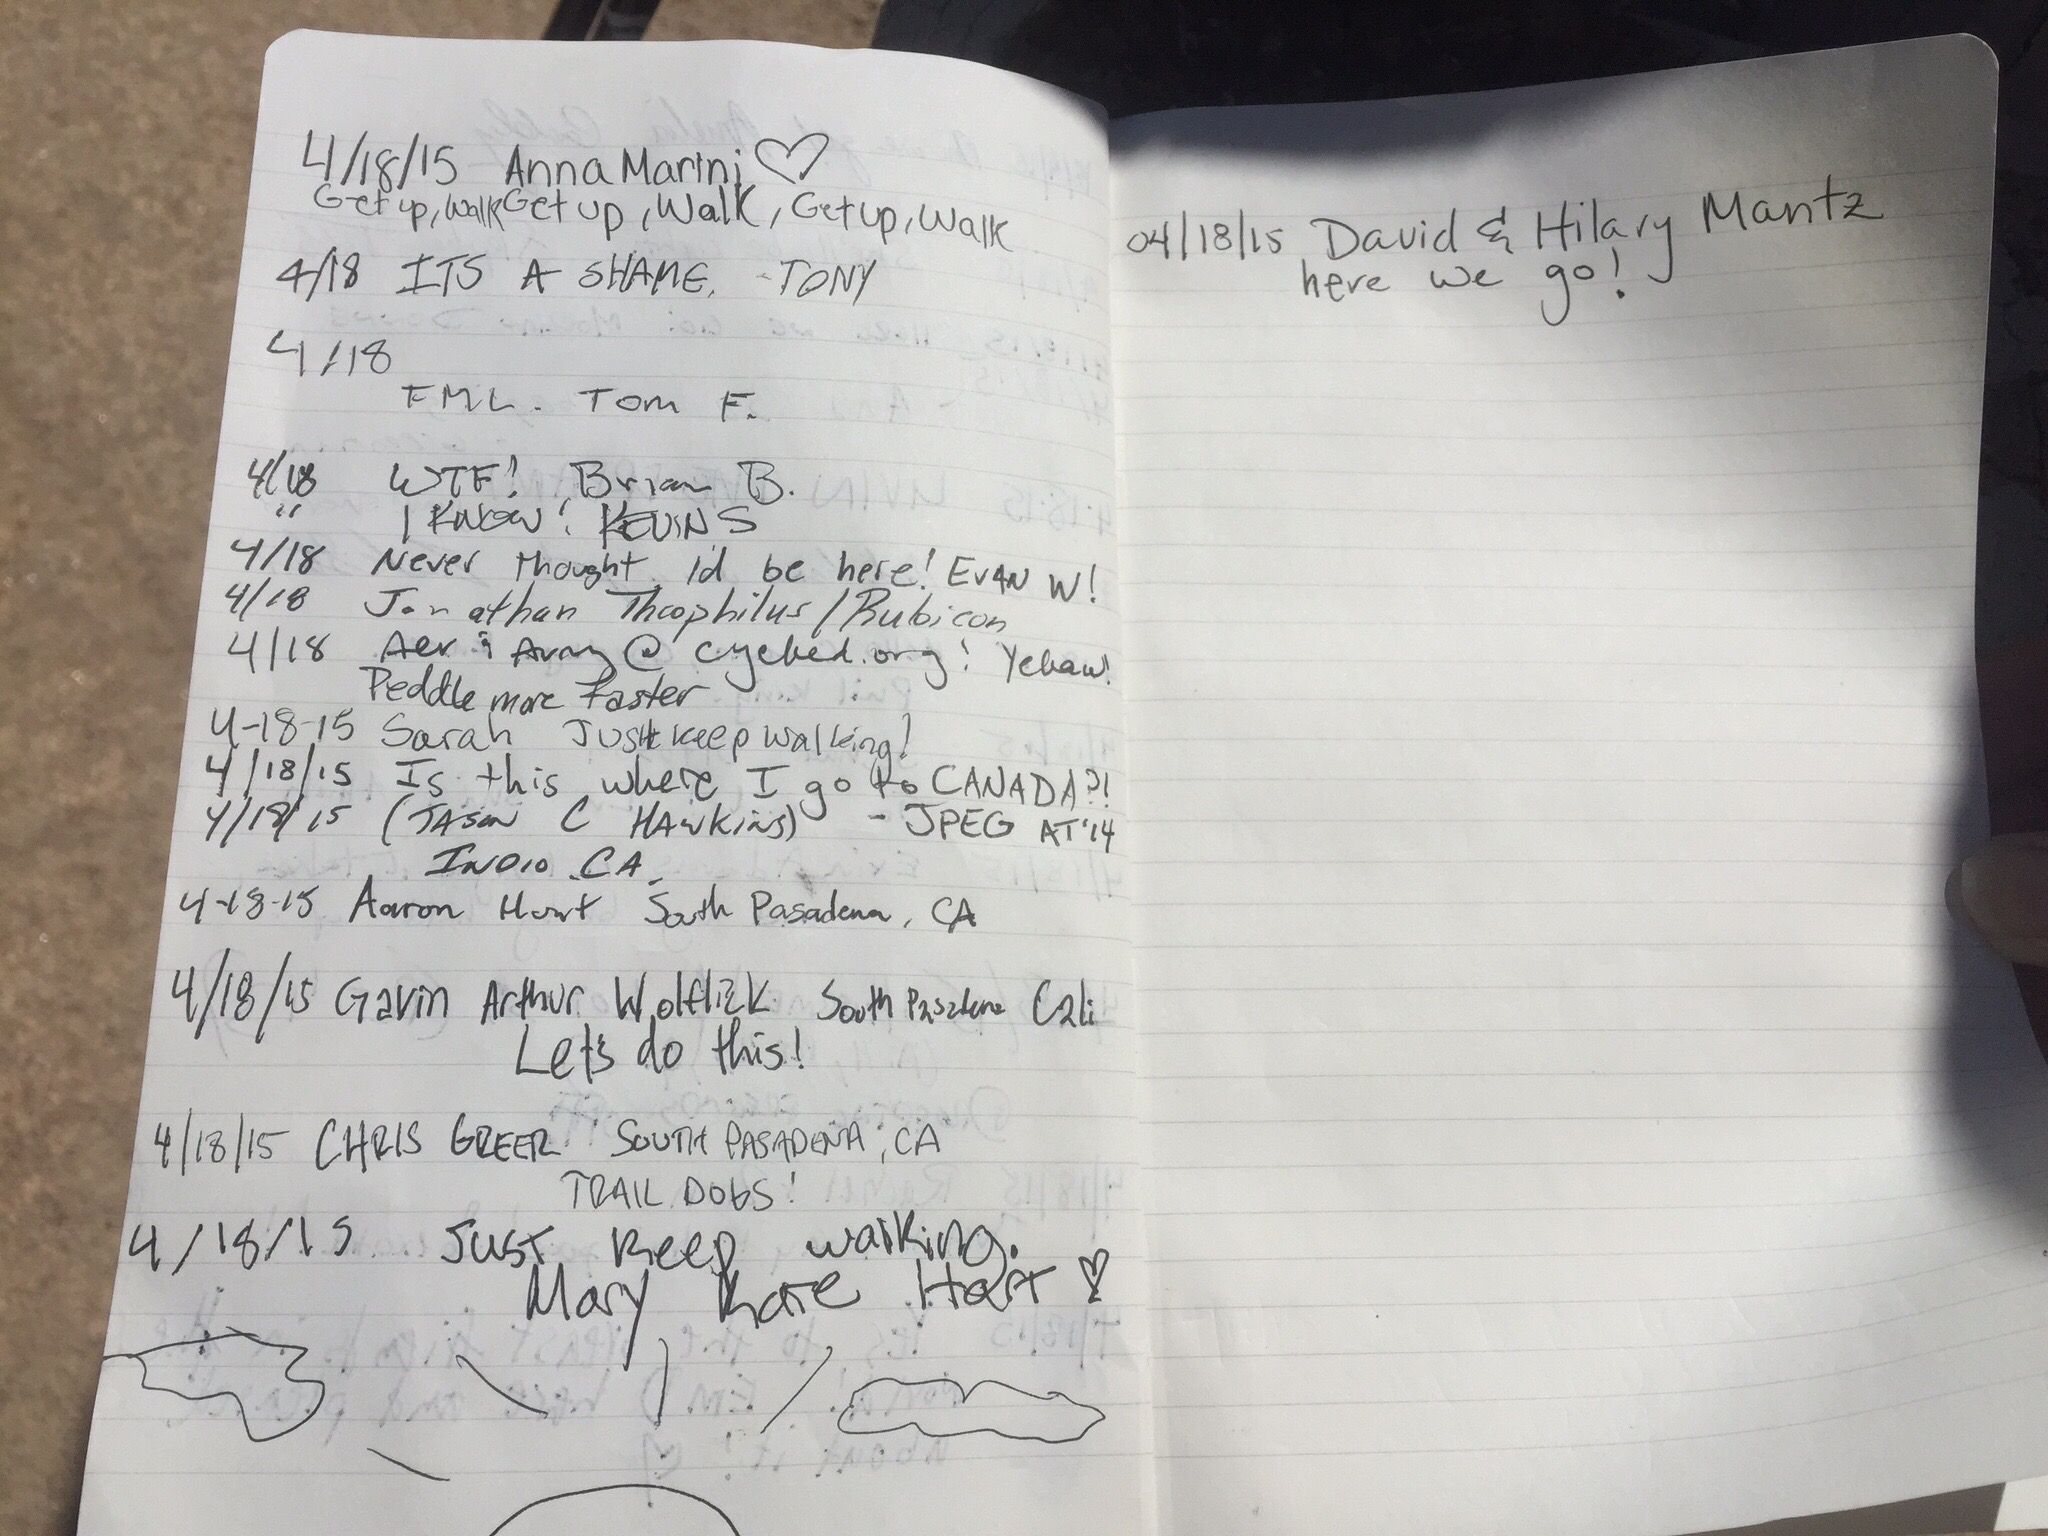 4/18/15 Anna Marini ♡
Get up, Walk Get up, Walk, Get up, Walk
4/18 ITS A SHAME. -TONY
4/18
FML. Tom F.
4/18 WTF! Brian B.
" I KNOW! KEVIN S
4/18 Never thought I'd be here! EVAN W!
4/18 Jonathan Theophilus/Rubicon
4/18 @ .org! Yehaw!
Peddle more faster
4-18-15 Sarah Just keep walking!
4/18/15 Is this where I go to CANADA?!
4/18/15 (JASON C HAWKINS) - JPEG AT '14
INDIO CA.
4-18-15 Aaron South Pasadena, CA
4/18/15 Gavin Arthur South Pasadena Cali
Let's do this!
4/18/15 CHRIS GREER SOUTH PASADENA, CA
TRAIL DOGS!
4/18/15 Just keep walking.
Mary Kate Hart ♡
04/18/15 David & Hilary Mantz
here we go!